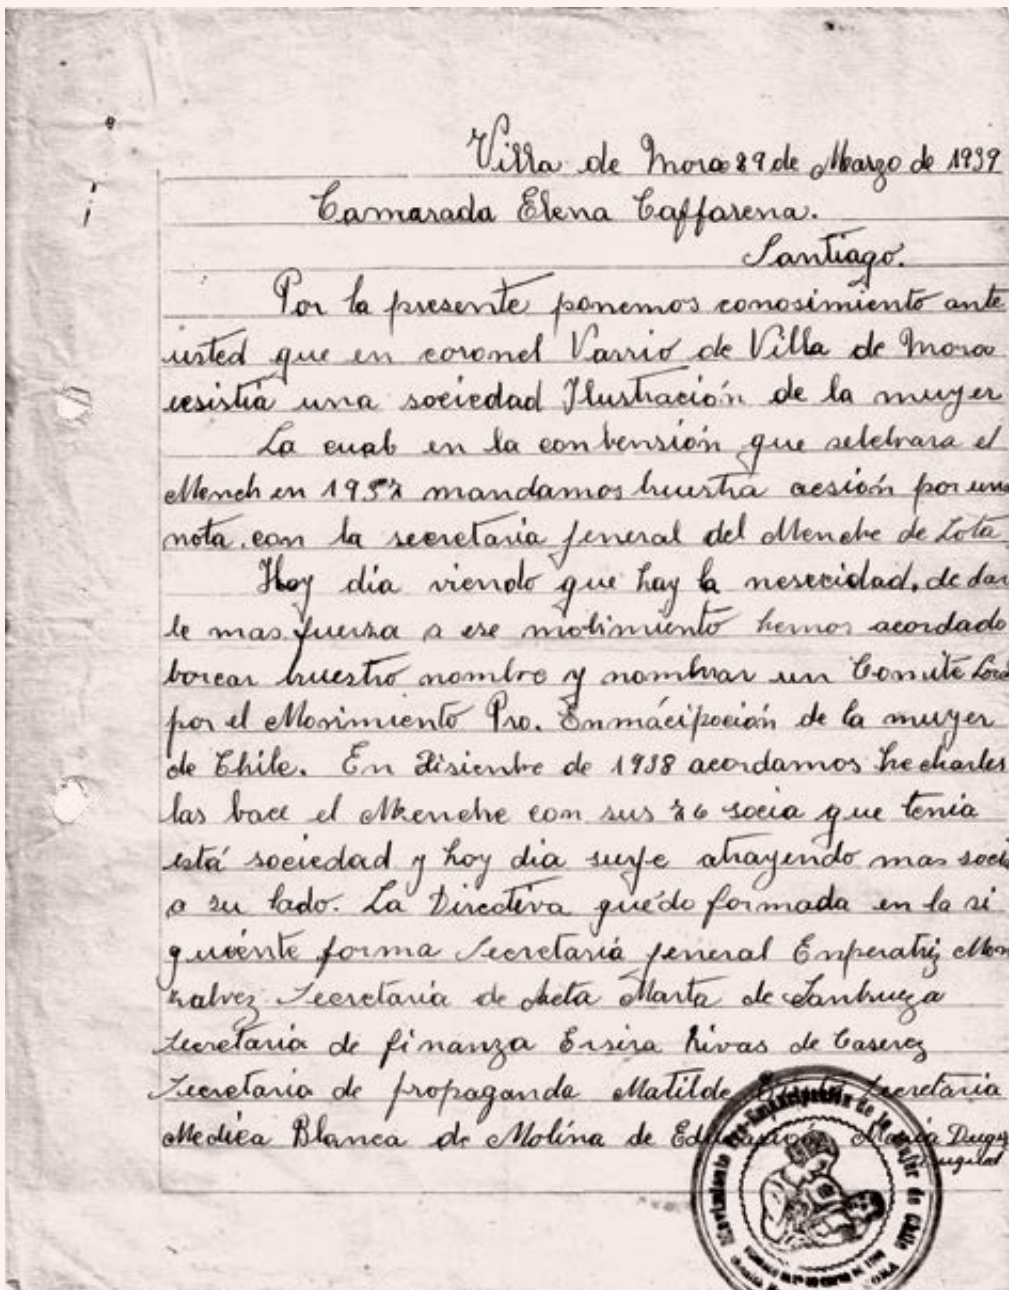 Villa de Mora 29 de Marzo de 1939
Camarada Elena Caffarena.
Santiago.
Por la presente ponemos conosimiento ante
usted que en coronel Varrio de Villa de Mora
eesistia una sociedad Ilustración de la muyer
La cual en la conbensión que selebrara el
Mench en 1937 mandamos huestra aesión por una
nota. con la secretaria jeneral del Menche de Lota
Hoy dia viendo que hay la nesecidad. de dar
le mas fuerza a ese mobimiento hemos acordado
borear huestro nombre y nombrar un Comite
por el Movimiento Pro. Enmácipoción de la muyer
de Chile. En Disienbre de 1938 acordamos hecharles
las bace el Menche con sus 26 socia que tenia
está sociedad y hoy dia surje atrayendo mas
a su lado. La Directiva quédo formada en la si
guiénte forma Secretaria jeneral Enperatriz Mon
zalvez Secretaria de Acta Marta de Sanhueza
Secretaria de finanza Ersira Rivas de Caserez
Secretaria de propaganda Matilde Secretaria
Medica Blanca de Molina de Maria
Movimiento Pro-Emancipación de la Mujer de Chile